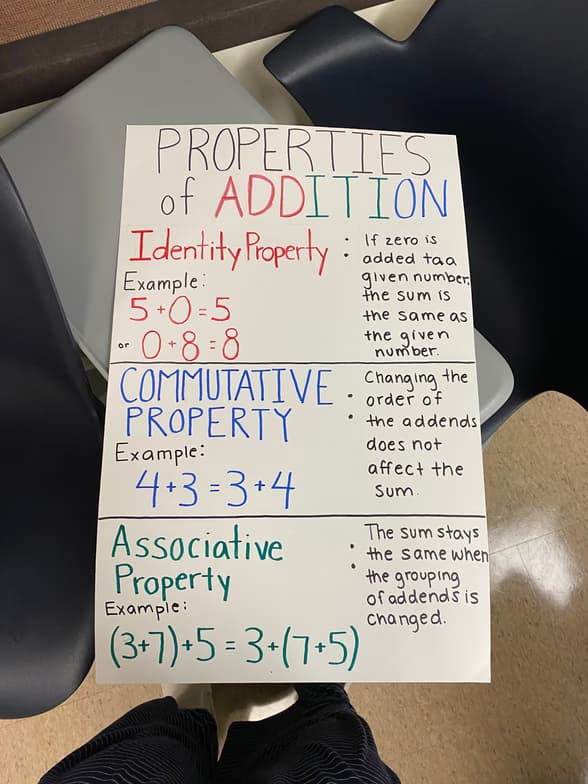 PROPERTIES
of ADDITION
Identity Property :
Example:
5+0=5
or 0+8=8
If zero is
added toa
given number,
the sum is
the same as
the given
number.
COMMUTATIVE
PROPERTY :
Example:
4+3=3+4
Changing the
order of
the addends
does not
affect the
sum.
Associative
Property :
Example:
(3+7)+5=3+(7+5)
The sum stays
the same when
the grouping
of addends is
changed.